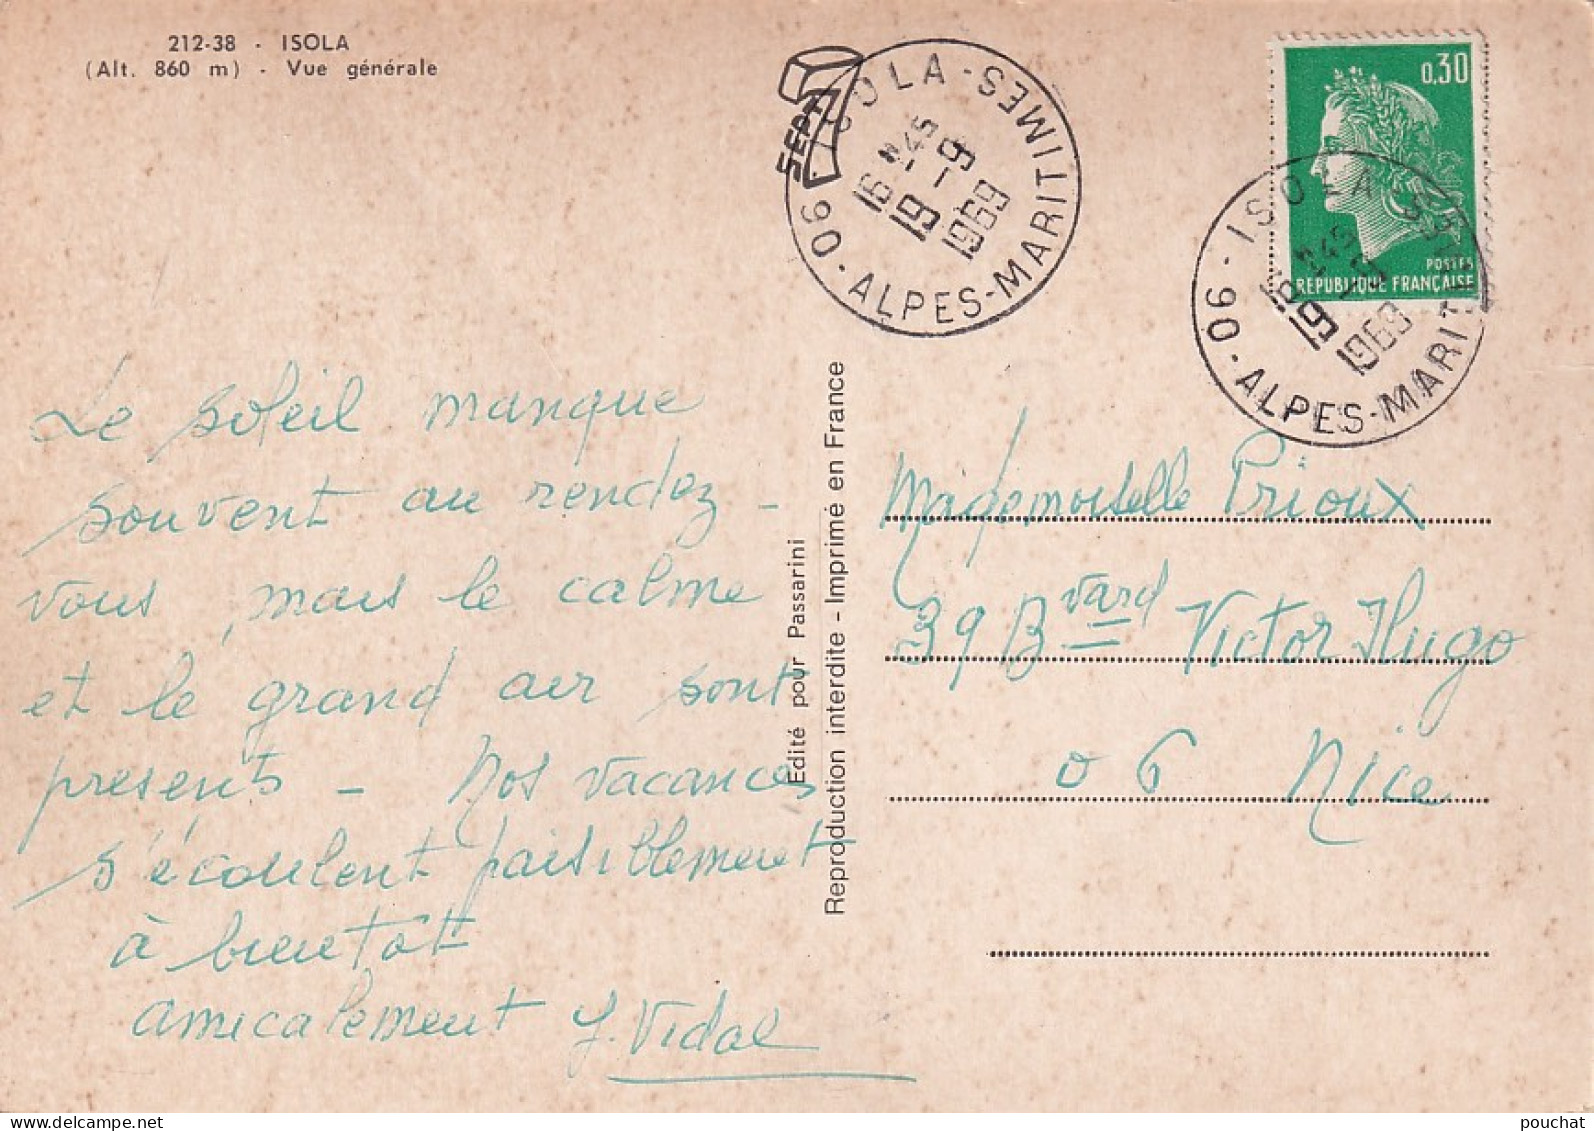 212-38 - ISOLA
(Alt. 860 m) - Vue générale
Le soleil manque
souvent au rendez-
vous, mais le calme
et le grand air sont
présents - Nos vacances
s'écoulent paisiblement
à bientôt
amicalement J. Vidal
Edité pour Passarini
Reproduction interdite - Imprimé en France
SEPT
ISOLA - 90 - ALPES-MARITIMES
16 H 45
19 - 9
1969
0,30
POSTES
REPUBLIQUE FRANÇAISE
ISOLA
90 - ALPES-MARIT
16 H 45
19
1969
Mademoiselle Prioux
39 Bvard Victor Hugo
06 Nice
pouchat